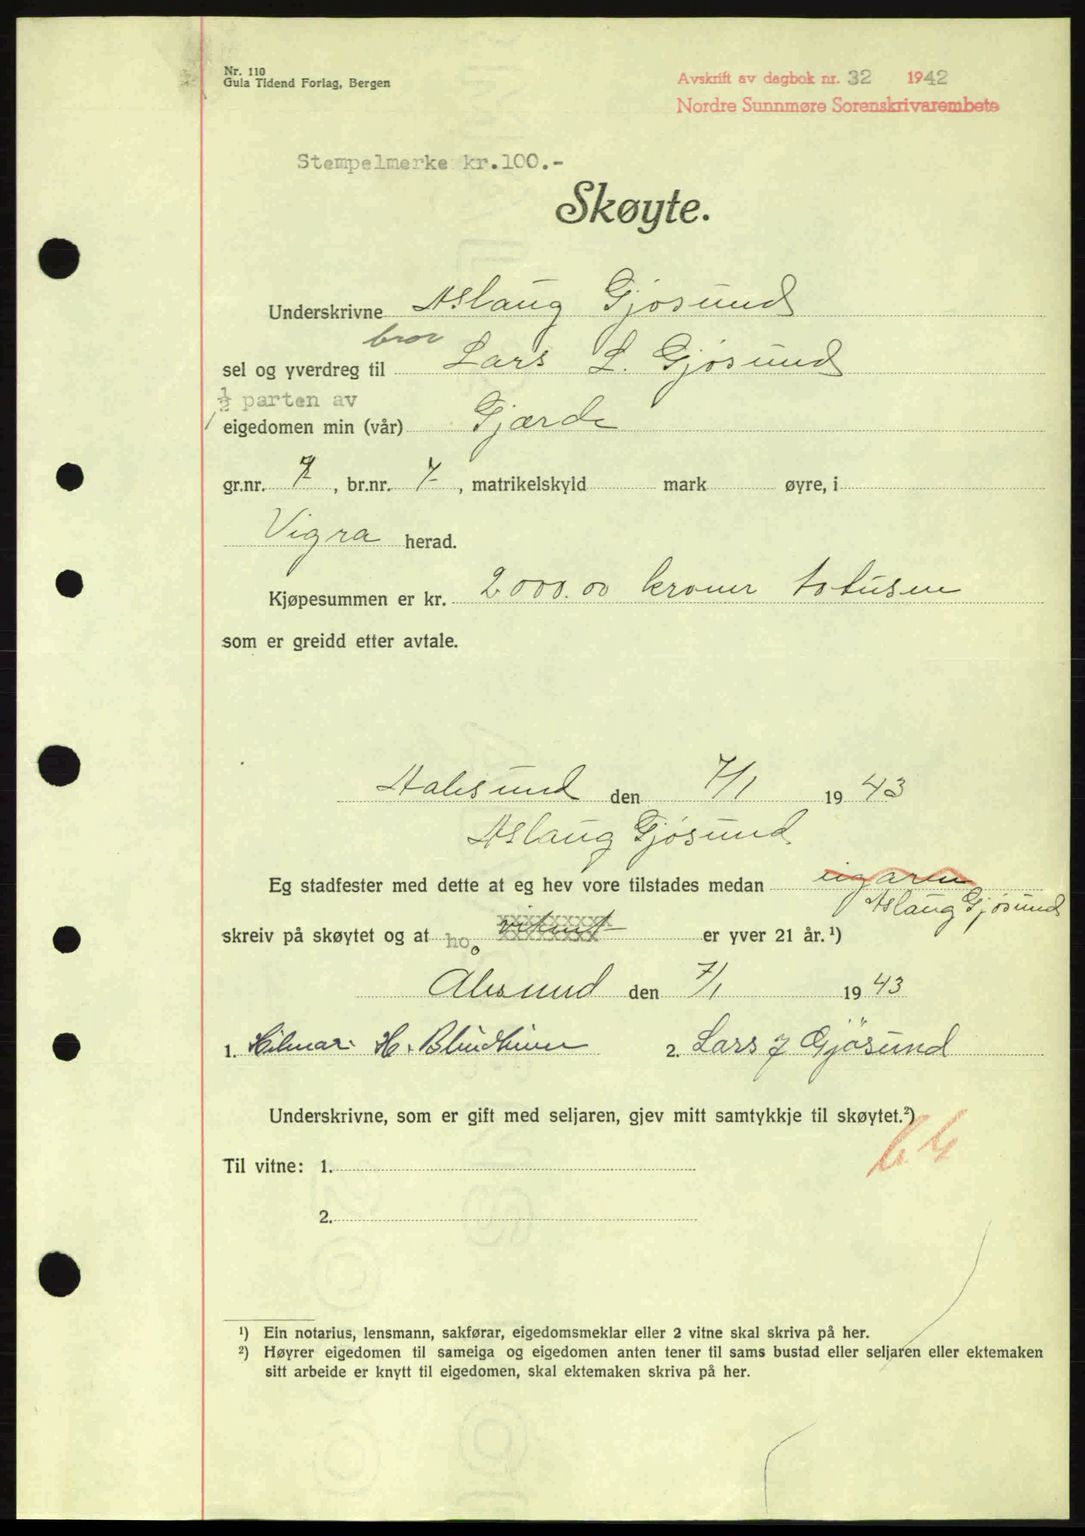 Nr. 110
Gula Tidend Forlag, Bergen
Avskrift av dagbok nr. 32 1942
Nordre Sunnmøre Sorenskrivarembete
Stempelmerke kr.100.-
Skøyte.
Underskrivne Aslaug Gjøsund
bror
sel og yverdreg til Lars L. Gjøsund
1/2 parten av
eigedomen min (vår) Gjærde
gr.nr. 7, br.nr. 7, matrikelskyld mark øyre, i
Vigra herad.
Kjøpesummen er kr. 2000.00 kroner totusen
som er greidd etter avtale.
Aalesund den 7/1 1943
Aslaug Gjøsund
Eg stadfester med dette at eg hev vore tilstades medan eigaren
Aslaug Gjøsund
skreiv på skøytet og at ho er yver 21 år.¹)
Alesund den 7/1 1943
1. Hilmar H. Blindheim 2. Lars J Gjøsund
Underskrivne, som er gift med seljaren, gjev mitt samtykkje til skøytet.²)
Til vitne: 1.
2.
¹) Ein notarius, lensmann, sakførar, eigedomsmeklar eller 2 vitne skal skriva på her.
²) Høyrer eigedomen til sameiga og eigedomen anten tener til sams bustad eller seljaren eller ektemaken
sitt arbeide er knytt til eigedomen, skal ektemaken skriva på her.